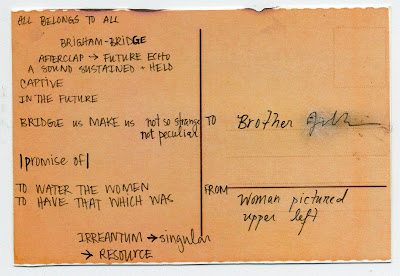 ALL BELONGS TO ALL
BRIGHAM-BRIDGE
AFTERCLAP → FUTURE ECHO
A SOUND SUSTAINED + HELD
CAPTIVE
IN THE FUTURE
BRIDGE us MAKE us not so strange
not peculiar
|promise of|
TO WATER THE WOMEN
TO HAVE THAT WHICH WAS
IRREANTUM → singular
→ RESOURCE
TO Brother
FROM Woman pictured
upper left